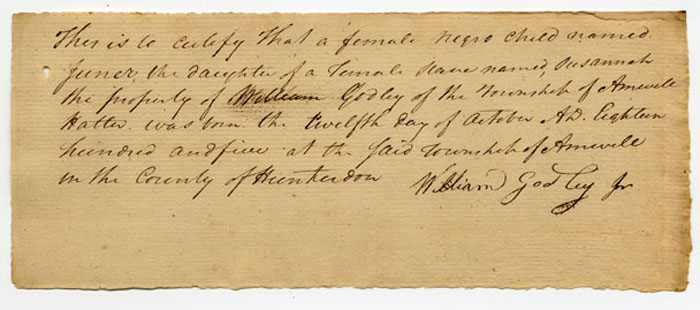 This is to certify That a female Negro child named
Juner, the daughter of a Female slave named, Susannah
the property of William Godley of the Township of Amwell
Hatter was born the Twelfth day of October AD. Eighteen
hundred and five at the said Township of Amwell
in the County of Hunterdon
William Godley Jr